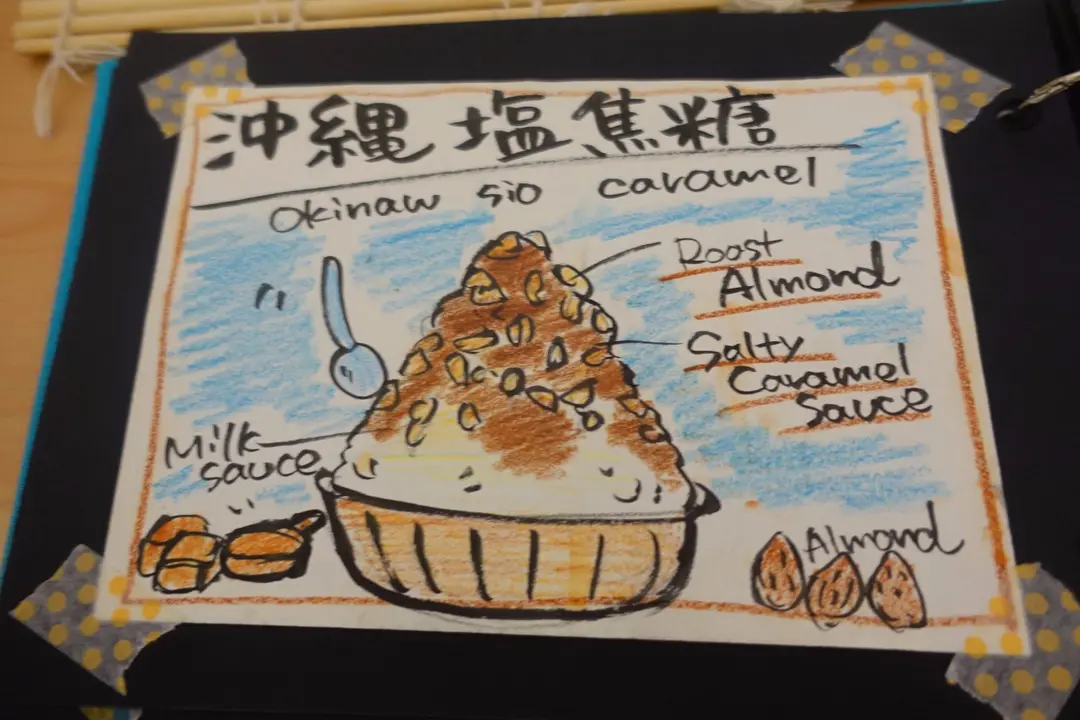 沖縄 塩焦糖
Okinaw sio caramel
Roost
Almond
Salty
Caramel
Sauce
Milk
sauce
Almond